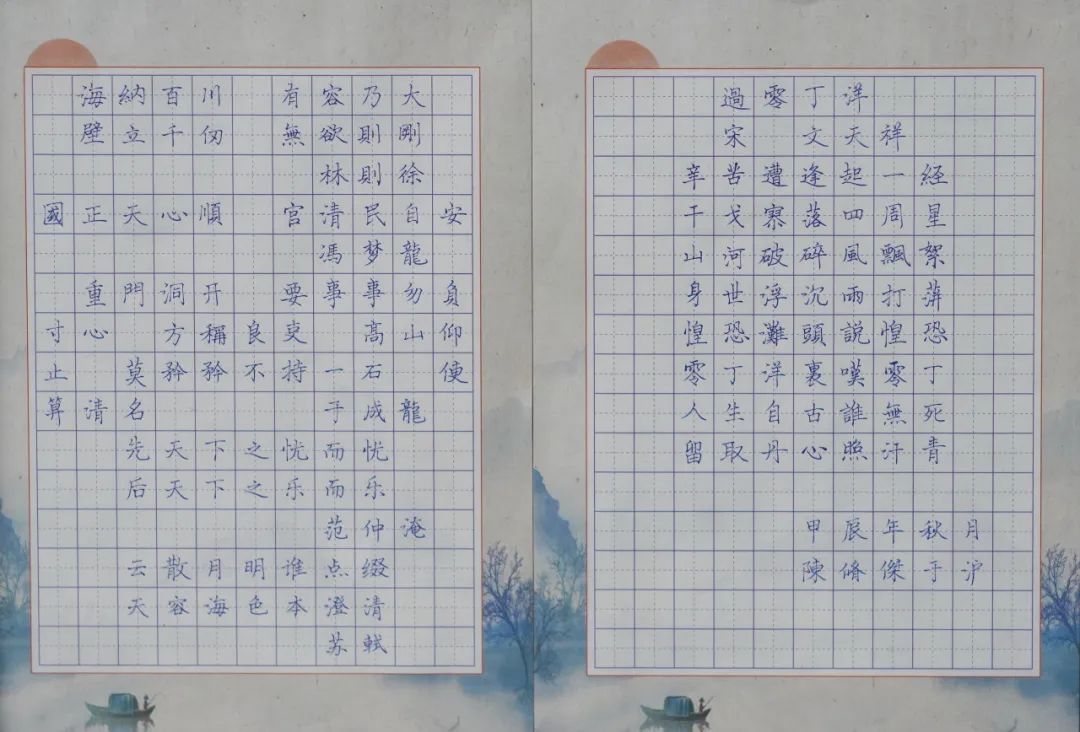 海納百川 有容乃大
壁立千仞 無欲則剛
林則徐
國正天心順 官清民自安
馮梦龍
重門洞开 要事事勿負
寸心 方稱良吏 高山仰
止 莫矜矜不持一石便
算清名 于成龍
先天下之忧而忧
后天下之乐而乐
范仲淹
云散月明谁点缀
天容海色本澄清
苏軾
過零丁洋
宋 文天祥
辛苦遭逢起一經
干戈寥落四周星
山河破碎風飄絮
身世浮沉雨打萍
惶恐灘頭說惶恐
零丁洋裏嘆零丁
人生自古誰無死
留取丹心照汗青
甲辰年秋月
陳脩傑于沪